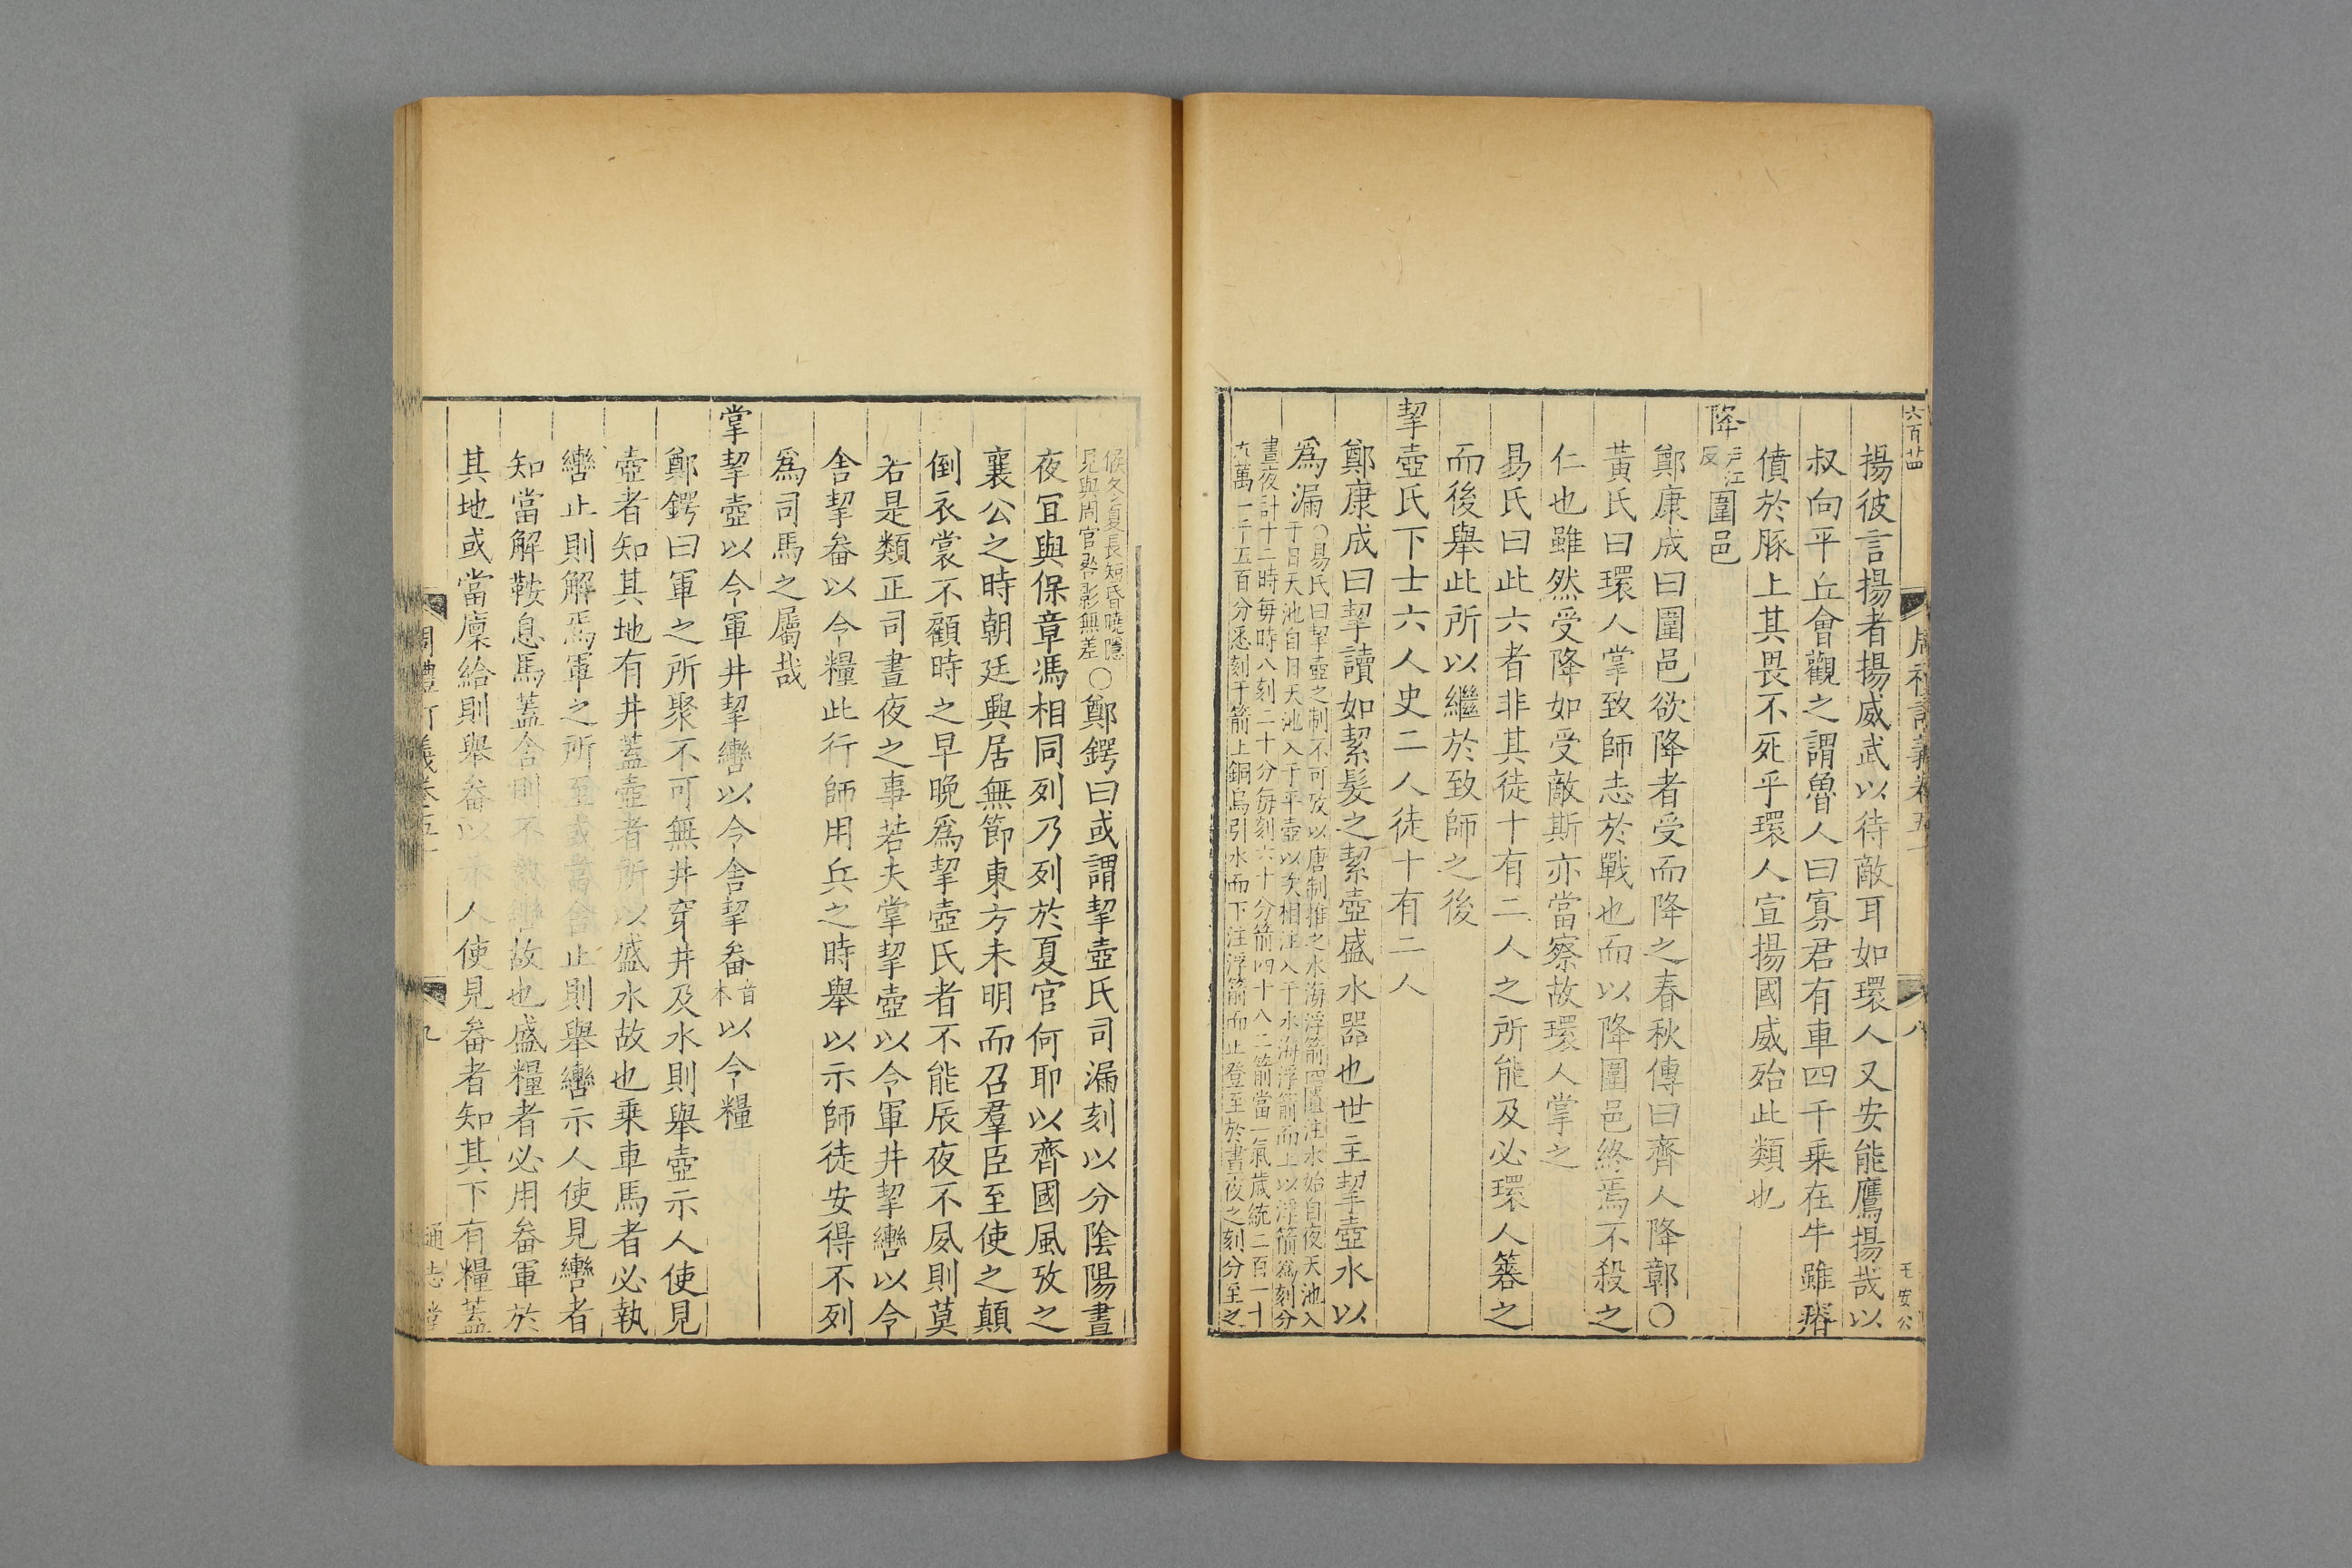 六百廿
周禮訂義卷五
八
王安公
揚彼言揚者揚威武以待敵耳如環人又安能鷹揚哉以
叔向平丘會觀之謂魯人曰寡君有車四千乗在牛雖瘠
僨於豚上其畏不死乎環人宣揚國威殆此類也
降戶江反圍邑
鄭康成曰圍邑欲降者受而降之春秋傳曰齊人降鄣〇
黃氏曰環人掌致師志於戰也而以降圍邑終焉不殺之
仁也雖然受降如受敵斯亦當察故環人掌之
易氏曰此六者非其徒十有二人之所能及必環人籌之
而後舉此所以繼於致師之後
挈壺氏下士六人史二人徒十有二人
鄭康成曰挈讀如絜髮之絜壺盛水器也世主挈壺水以
爲漏〇易氏曰挈壺之制不可攷以唐制推之水海浮箭四匱注水始自夜天池入
于日天池自日天池入于平壺以次相注入于水海浮箭而上以浮箭爲刻分
晝夜計十二時每時八刻二十分每刻六十分箭四十八二箭當一氣歲統二百一十
九萬一千五百分悉刻于箭上銅烏引水而下注浮箭而止登至於晝夜之刻分至之
候冬夏長短昏曉隱
見與周官晷影無差〇鄭鍔曰或謂挈壺氏司漏刻以分陰陽晝
夜冝與保章馮相同列乃列於夏官何耶以齊國風攷之
襄公之時朝廷興居無節東方未明而召羣臣至使之顛
倒衣裳不顧時之早晚爲挈壺氏者不能辰夜不夙則莫
若是類正司晝夜之事若夫掌挈壺以令軍井挈轡以令
舍挈畚以令糧此行師用兵之時舉以示師徒安得不列
爲司馬之屬哉
掌挈壺以令軍井挈轡以令舍挈畚音本以令糧
鄭鍔曰軍之所聚不可無井穿井及水則舉壺示人使見
壺者知其地有井蓋壺者所以盛水故也乗車馬者必執
轡止則解焉軍之所至或當舍止則舉轡示人使見轡者
知當解鞍息馬蓋舍則不執轡故也盛糧者必用畚軍於
其地或當廩給則舉畚以示人使見畚者知其下有糧蓋
周禮訂義卷五十
九
通志堂